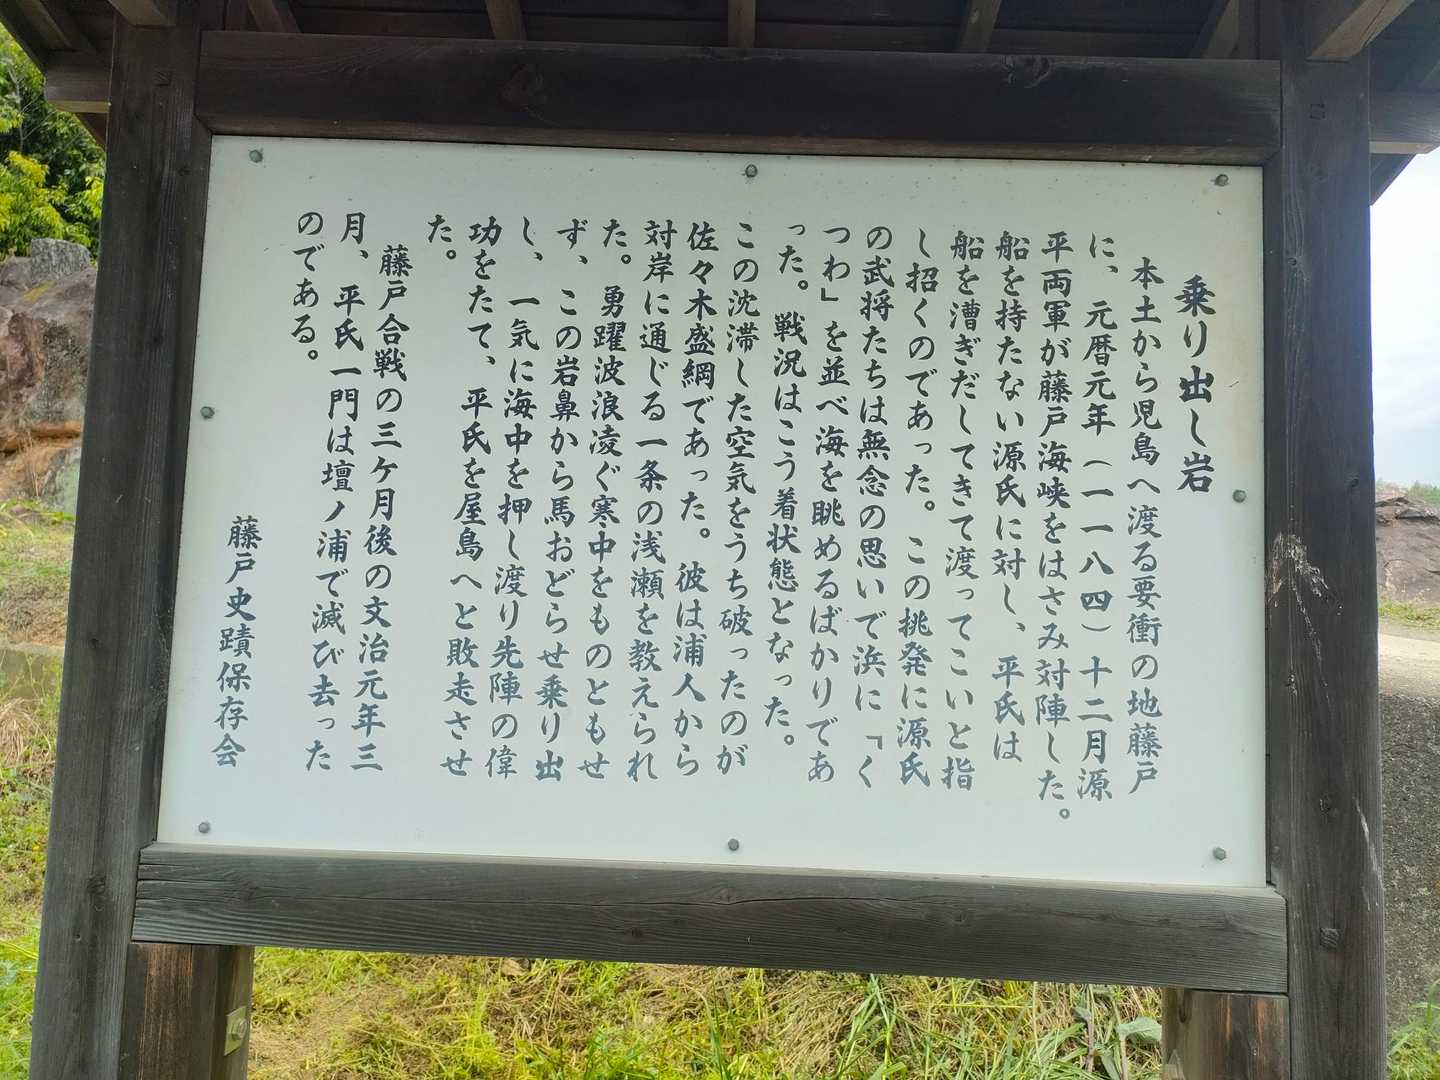 乗り出し岩
本土から児島へ渡る要衝の地藤戸
に、元暦元年（一一八四）十二月源
平両軍が藤戸海峡をはさみ対陣した。
船を持たない源氏に対し、平氏は
船を漕ぎだしてきて渡ってこいと指
し招くのであった。この挑発に源氏
の武将たちは無念の思いで浜に「く
つわ」を並べ海を眺めるばかりであ
った。戦況はこう着状態となった。
この沈滞した空気をうち破ったのが
佐々木盛綱であった。彼は浦人から
対岸に通じる一条の浅瀬を教えられ
た。勇躍波浪凌ぐ寒中をものともせ
ず、この岩鼻から馬おどらせ乗り出
し、一気に海中を押し渡り先陣の偉
功をたて、平氏を屋島へと敗走させ
た。
藤戸合戦の三ケ月後の文治元年三
月、平氏一門は壇ノ浦で滅び去った
のである。
藤戸史蹟保存会